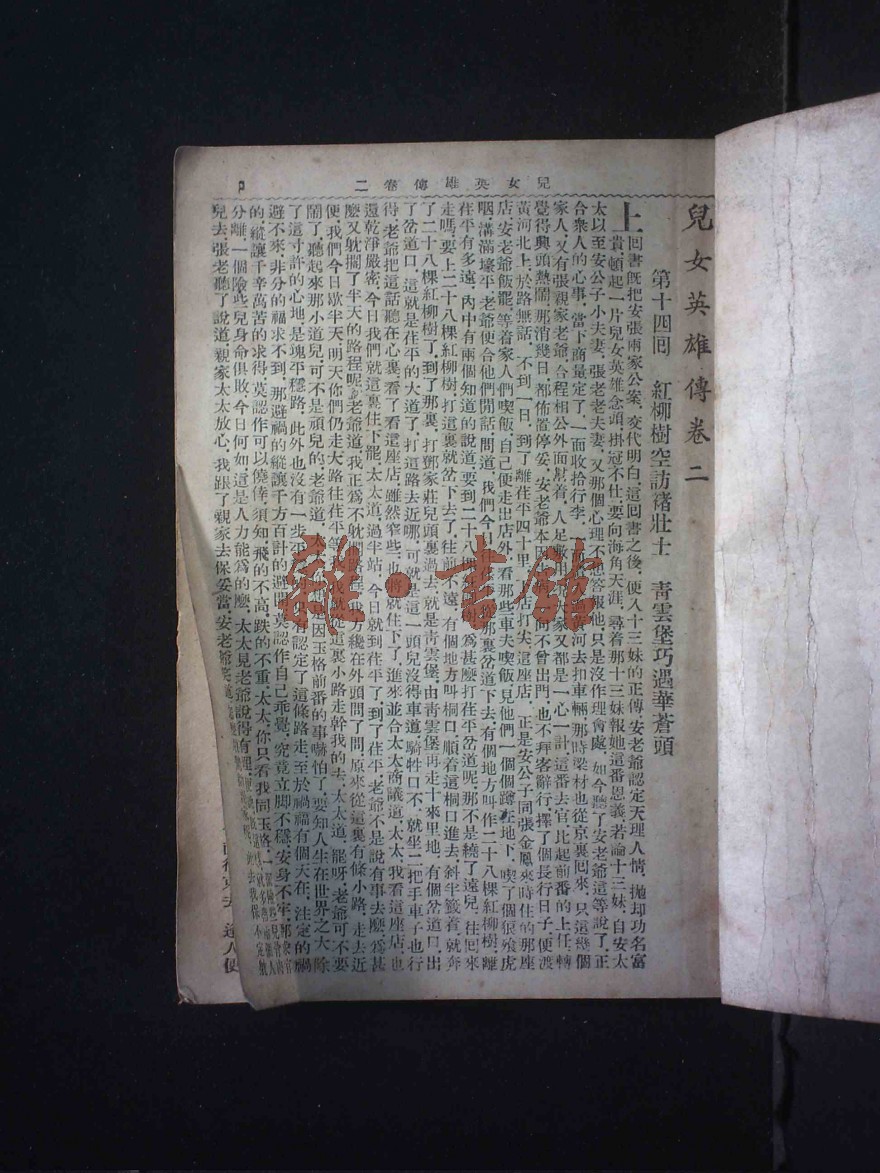 兒女英雄傳卷二
兒女英雄傳卷二
第十四回 紅柳樹空訪褚壯士 青雲堡巧遇華蒼頭
上回書旣把安張兩家公案交代明白,這回書之後,便入十三妹的正傳,安老爺認定天理人情,拋却功名富
貴,頓起一片兒女英雄念頭,掛冠不仕,要向海角天涯,尋着那十三妹報她這番恩義,若論十三妹,自安太
太以至安公子小夫妻,張老老夫妻,又那個心理不想答報他,只是沒作理會處,如今聽了安老爺這等說了,正
合衆人的心事,當下商量定了,一面收拾行李,河去扣車輛,那時梁材也從京裏回來,只這幾個
家人,又有張親家老爺,合程相公外面幫着,人足敷家又都是一心一計,這番去官,比起前番的上任,轉
覺得興頭熱鬧,那消幾日,都佈置停妥,安老爺本因不曾出門,也不拜客辭行,擇了個長行日子,便渡
黃河北上,於路無話,不到一日,到了離茌平四十里,店打尖,這座店,正是安公子同張金鳳來時住的那座
店,安老爺飯罷,等着家人們喫飯,自己便走出店外,看那些車夫喫飯,見他們一個個蹲在地下,喫了個狼飱虎
咽,溝滿壕平,老爺便合他們閒話,問道,我們今那裏岔道下去,有個地方叫作二十八棵紅柳樹,離
茌平有多遠,內中有兩個知道的說道,要到二十八棵爲甚麽打茌平岔道呢,那不是繞了遠兒,往回來
走嗎,要上二十八棵紅柳樹,打這裏就岔下去了,往前不遠,有個地方叫桐口,順着這桐口進去,斜半籤着,就奔
了二十八棵紅柳樹了,到了那裏,打鄧家莊兒頭裏過去,就是青雲堡,由青雲堡再走十來里地,有個岔道口,出
了岔道口,這就是茌平的大道了,打這路去近哪,可就是這一頭兒沒得車道,騎牲口不,就坐二把手車子也行
得,老爺把這話聽在心裏,看了看這座店,雖然窄些,也將就住下了,進來並合太太商議道,太太,我看這座店,也
還乾淨嚴密,今日我們就這裏住下罷,太太道,過半站,今日就到茌平了,到了茌平,老爺不是說有事去麽,爲甚
麽又躭擱了半天的路程呢,老爺道,我正爲不躭擱路程,我方纔在外頭問了問,原來從這裏有條小路,走去近
便,我們今日歇半天,明天你們仍走大路,往茌平等我,我就從這裏小路走幹我的去,太太道,罷呀,老爺可不要
鬧了,聽起來那小道兒,可不是頑兒的,老爺道,太因玉格前番的事嚇怕了,要知人生在世界之大,除
了這寸許的心地,是塊平穩路,此外也沒有一步平有認定了這條路走,至於禍福有個天在,注定的禍
避不來,非分的福求不到,那避禍的縱讓千方百計的避開,莫認作自己乖覺,究竟立脚不穩,安身不牢,那衆官
的縱讓千辛萬苦的求得,莫認作可以僥倖,須知飛的不高,跌的不重,太太,你只看我同玉格,
分離一個險些兒身命俱敗,今日何如,這是人力能爲的麽,太太見老爺說得有理,便
兒去,張老聽了說道,親家太太放心,我跟了親家去保妥當,安老爺笑道,
雜·書館